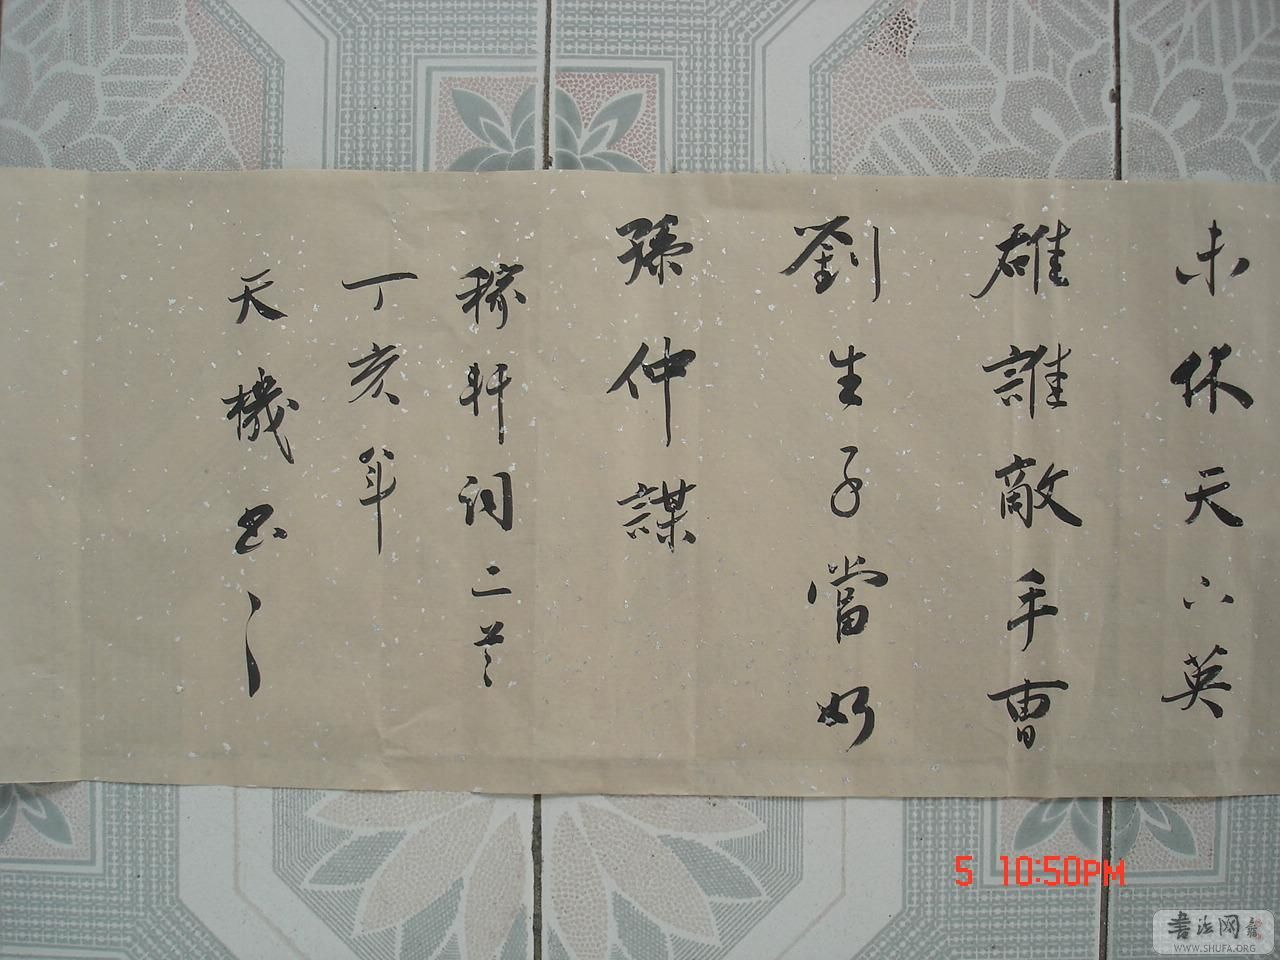 未休天下英
雄誰敵手曹
劉生子當如
孫仲謀
稼軒詞二首
丁亥年
天機书之
5 10:50PM
書法网
WWW.SHUFA.ORG